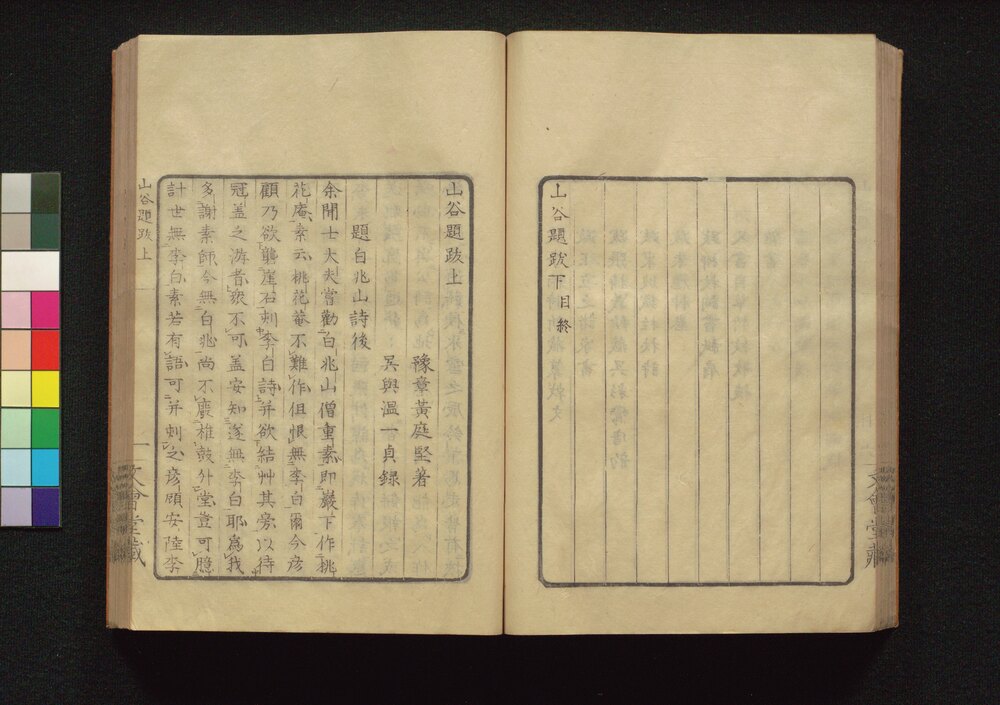 山谷題跋下目終
文會堂藏
山谷題跋上
豫章黃庭堅著
吳興溫一貞録
題白兆山詩後
余聞士大夫嘗勸白兆山僧重素即巖下作桃
花庵素云桃花菴不難作但恨無李白爾今彦
顧乃欲礱崖石刺李白詩并欲結艸其旁以待
冠盖之游者衆不可盖安知遂無李白耶為我
多謝素師今無白兆尚不廢椎鼓升堂豈可臆
計世無李白素若有語可并刺之彦顧安陸李
山谷題跋上
一
文會堂藏